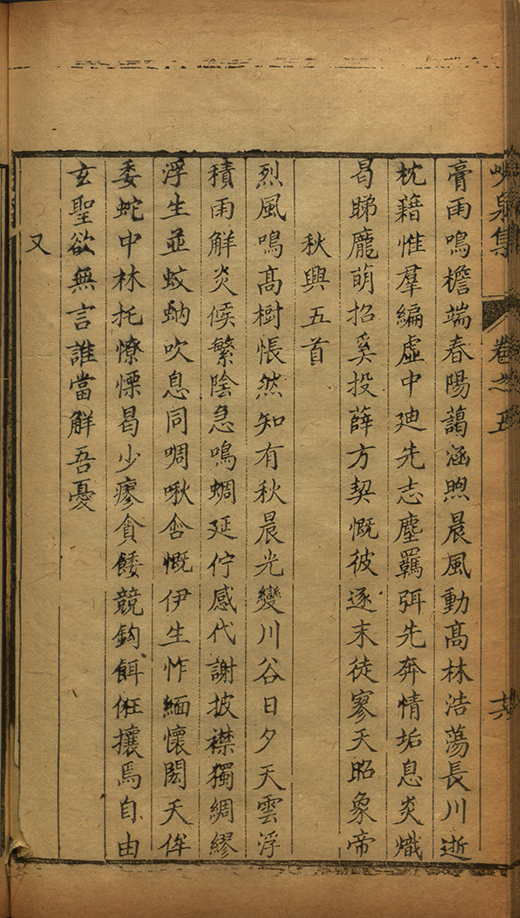 峴泉集 卷之五 六
膏雨鳴檐端春陽藹涵煦晨風動髙林浩蕩長川逝
枕藉惟羣編虛中廸先志塵羈弭先奔情垢息炎熾
曷睇龎萌招奚投薛方契慨彼逐末徒寥天昭象帝
秋興五首
烈風鳴髙樹悵然知有秋晨光變川谷日夕天雲浮
積雨解炎候繁陰急鳴蜩延佇感代謝披襟獨綢繆
浮生並蚊蚋吹息同啁啾含慨伊生怍緬懷閎天侔
委蛇中林托憭慄曷少瘳貪餧競鈎餌俇攘焉自由
玄聖欲無言誰當解吾憂
又